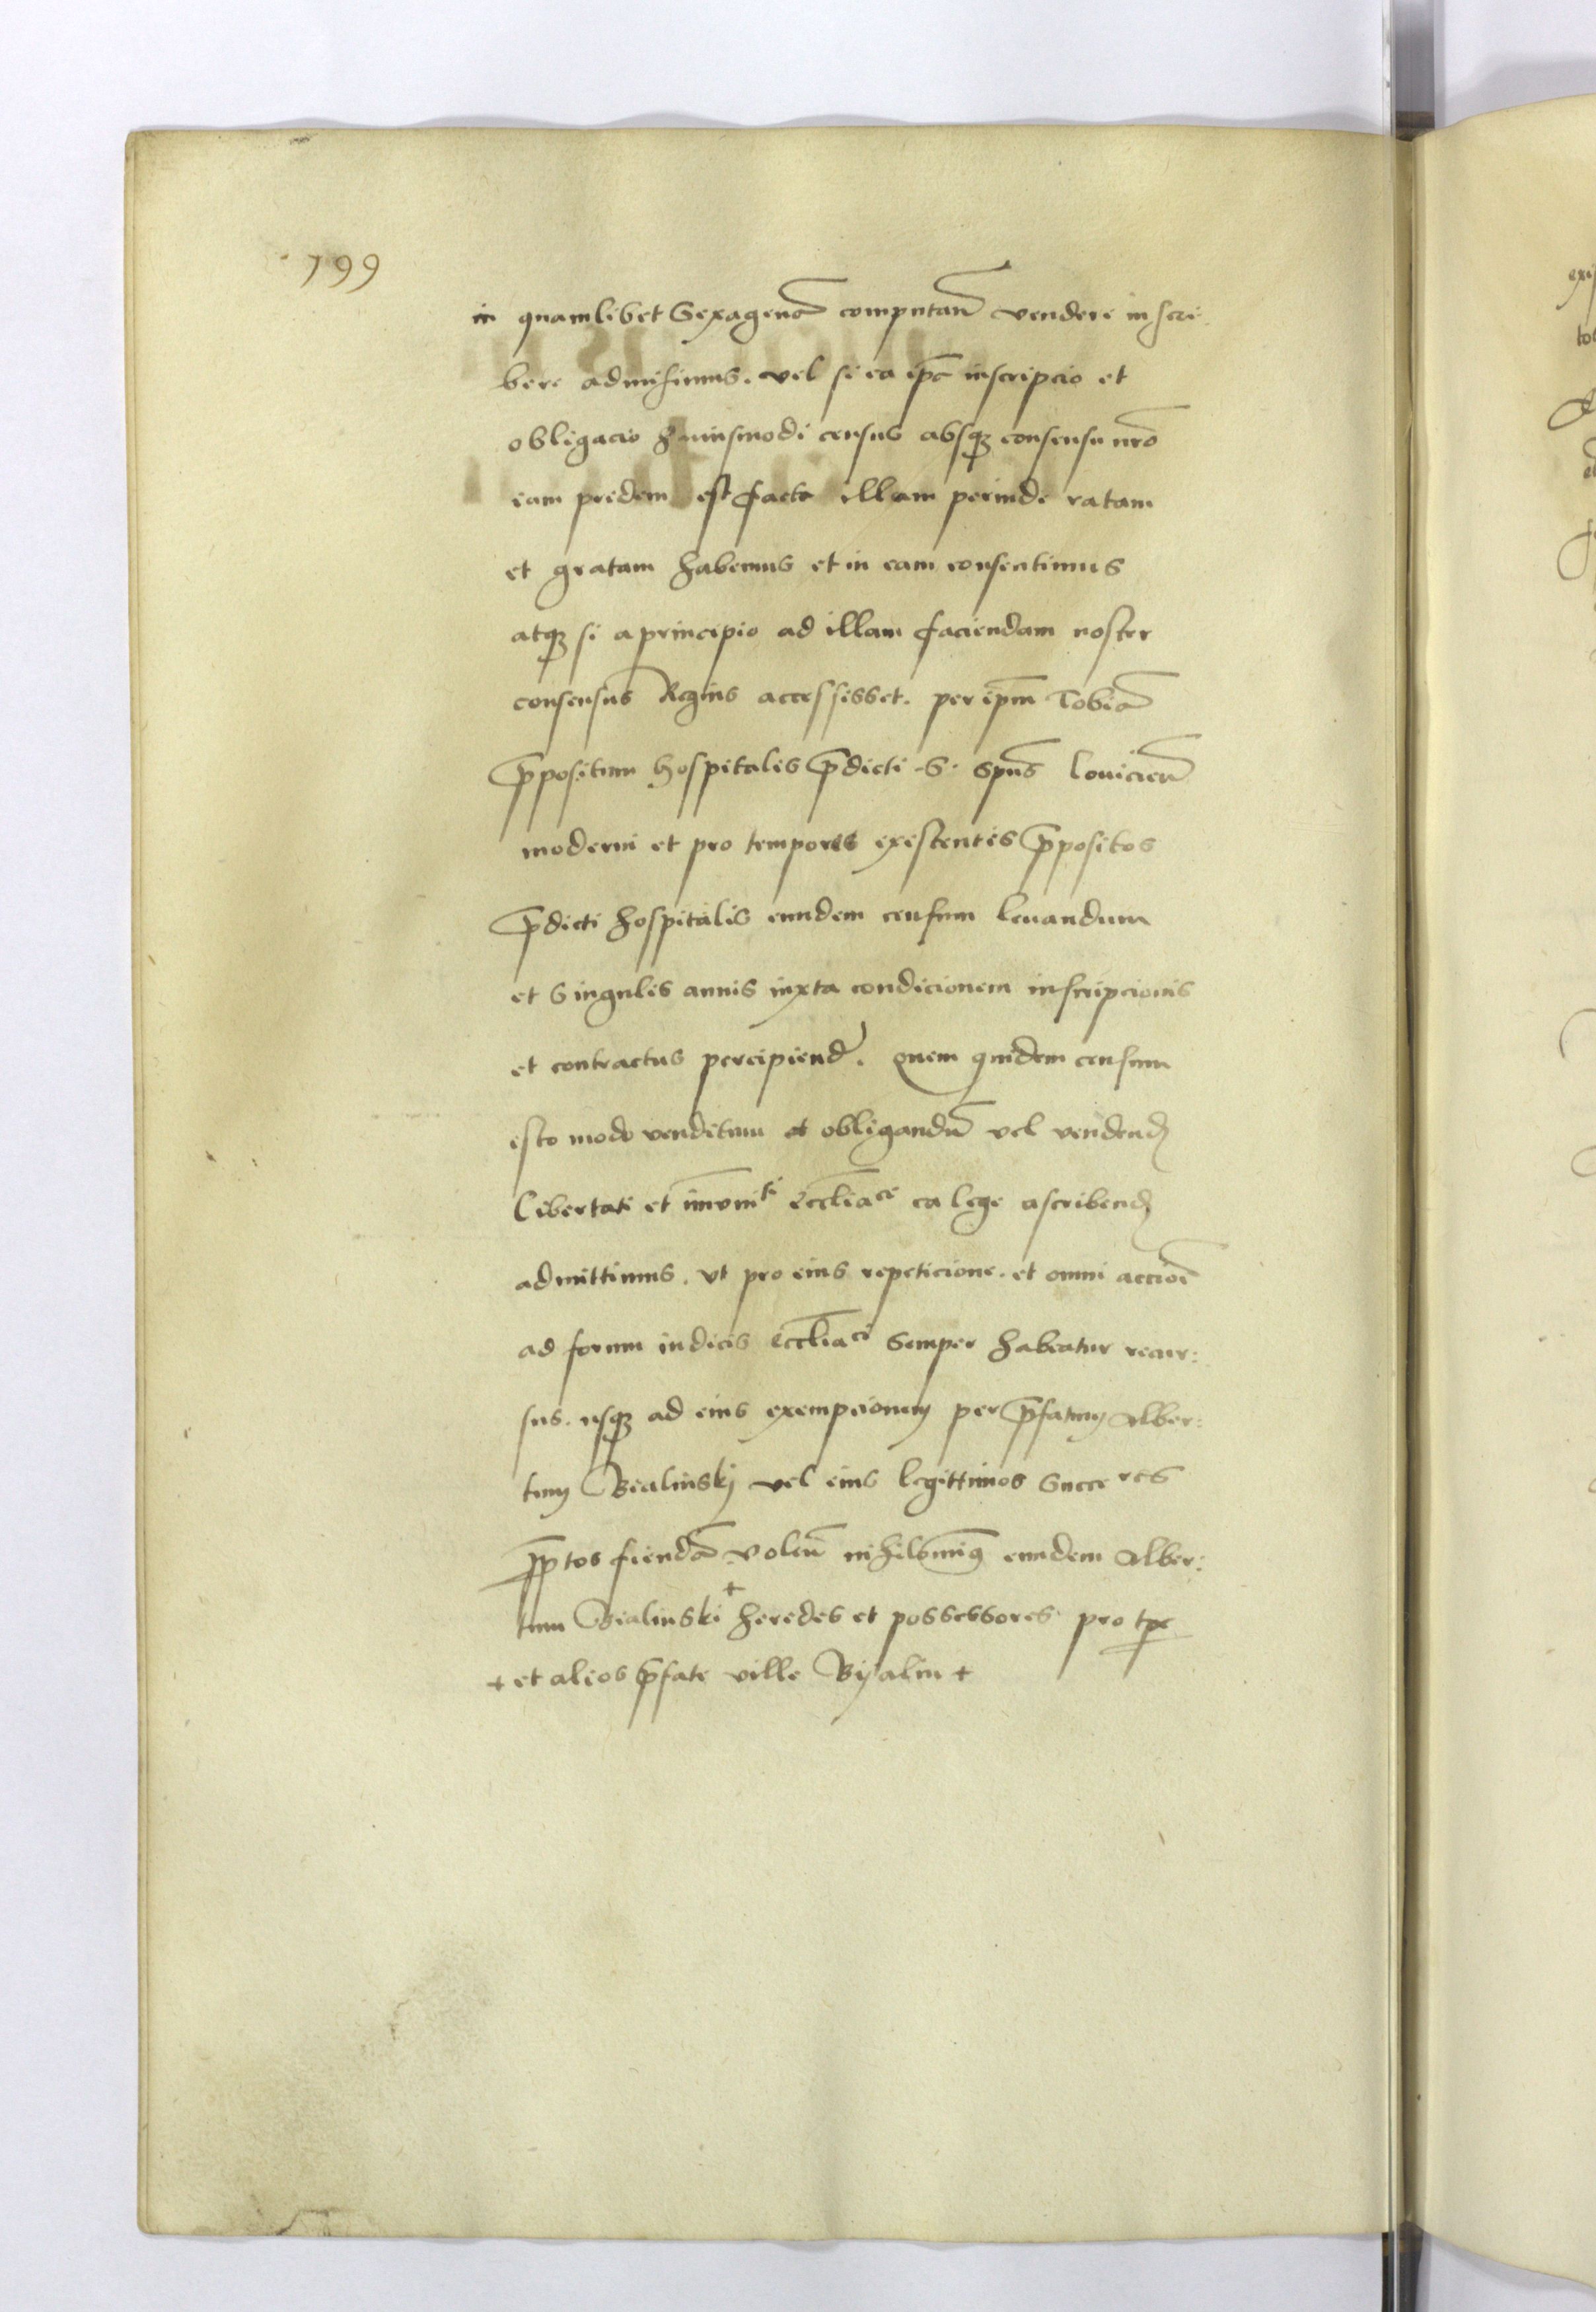 199
in quamlibet Sexagenā computan̄ vendere inscri-
bere admisimus. vel si ea ip̄a inscripcio et
obligacio huiusmodi census absq; consensu nr̄o
eam pridem est facta illam perinde ratam
et gratam habemus et in eam consentimus
atq; si a principio ad illam faciendam noster
consensus Regius accessisset. per ip̄m Tobiā
p̄positum hospitalis p̄dicti .S. Spūs Louicien̄
moderni et pro tempores existentes p̄positos
p̄dicti hospitalis eundem censum leuandum
et singulis annis iuxta condicionem inscripcionis
et contractus percipiend. Quem quidem censum
isto modo venditum et obligandū vel vendend
libertati et im̄unitⁱ eccl̄iaᶜᵉ ea lege ascribend
admittimus. vt pro eius repeticione. et omni accioē
ad forum iudicis eccl̄iaᶜⁱ semper habeatur recur:
sus. usq; ad eius exempcionem per p̄fatum Alber:
tum Bialinskj vel eius legittimos succeʳᵉˢ
p̄ptos fiendā. volen̄ nihilomin9 eundem Alber:
tum Bialinski + heredes et possessores pro tp̄e
+ et alios p̄fate ville Byalin +
exi